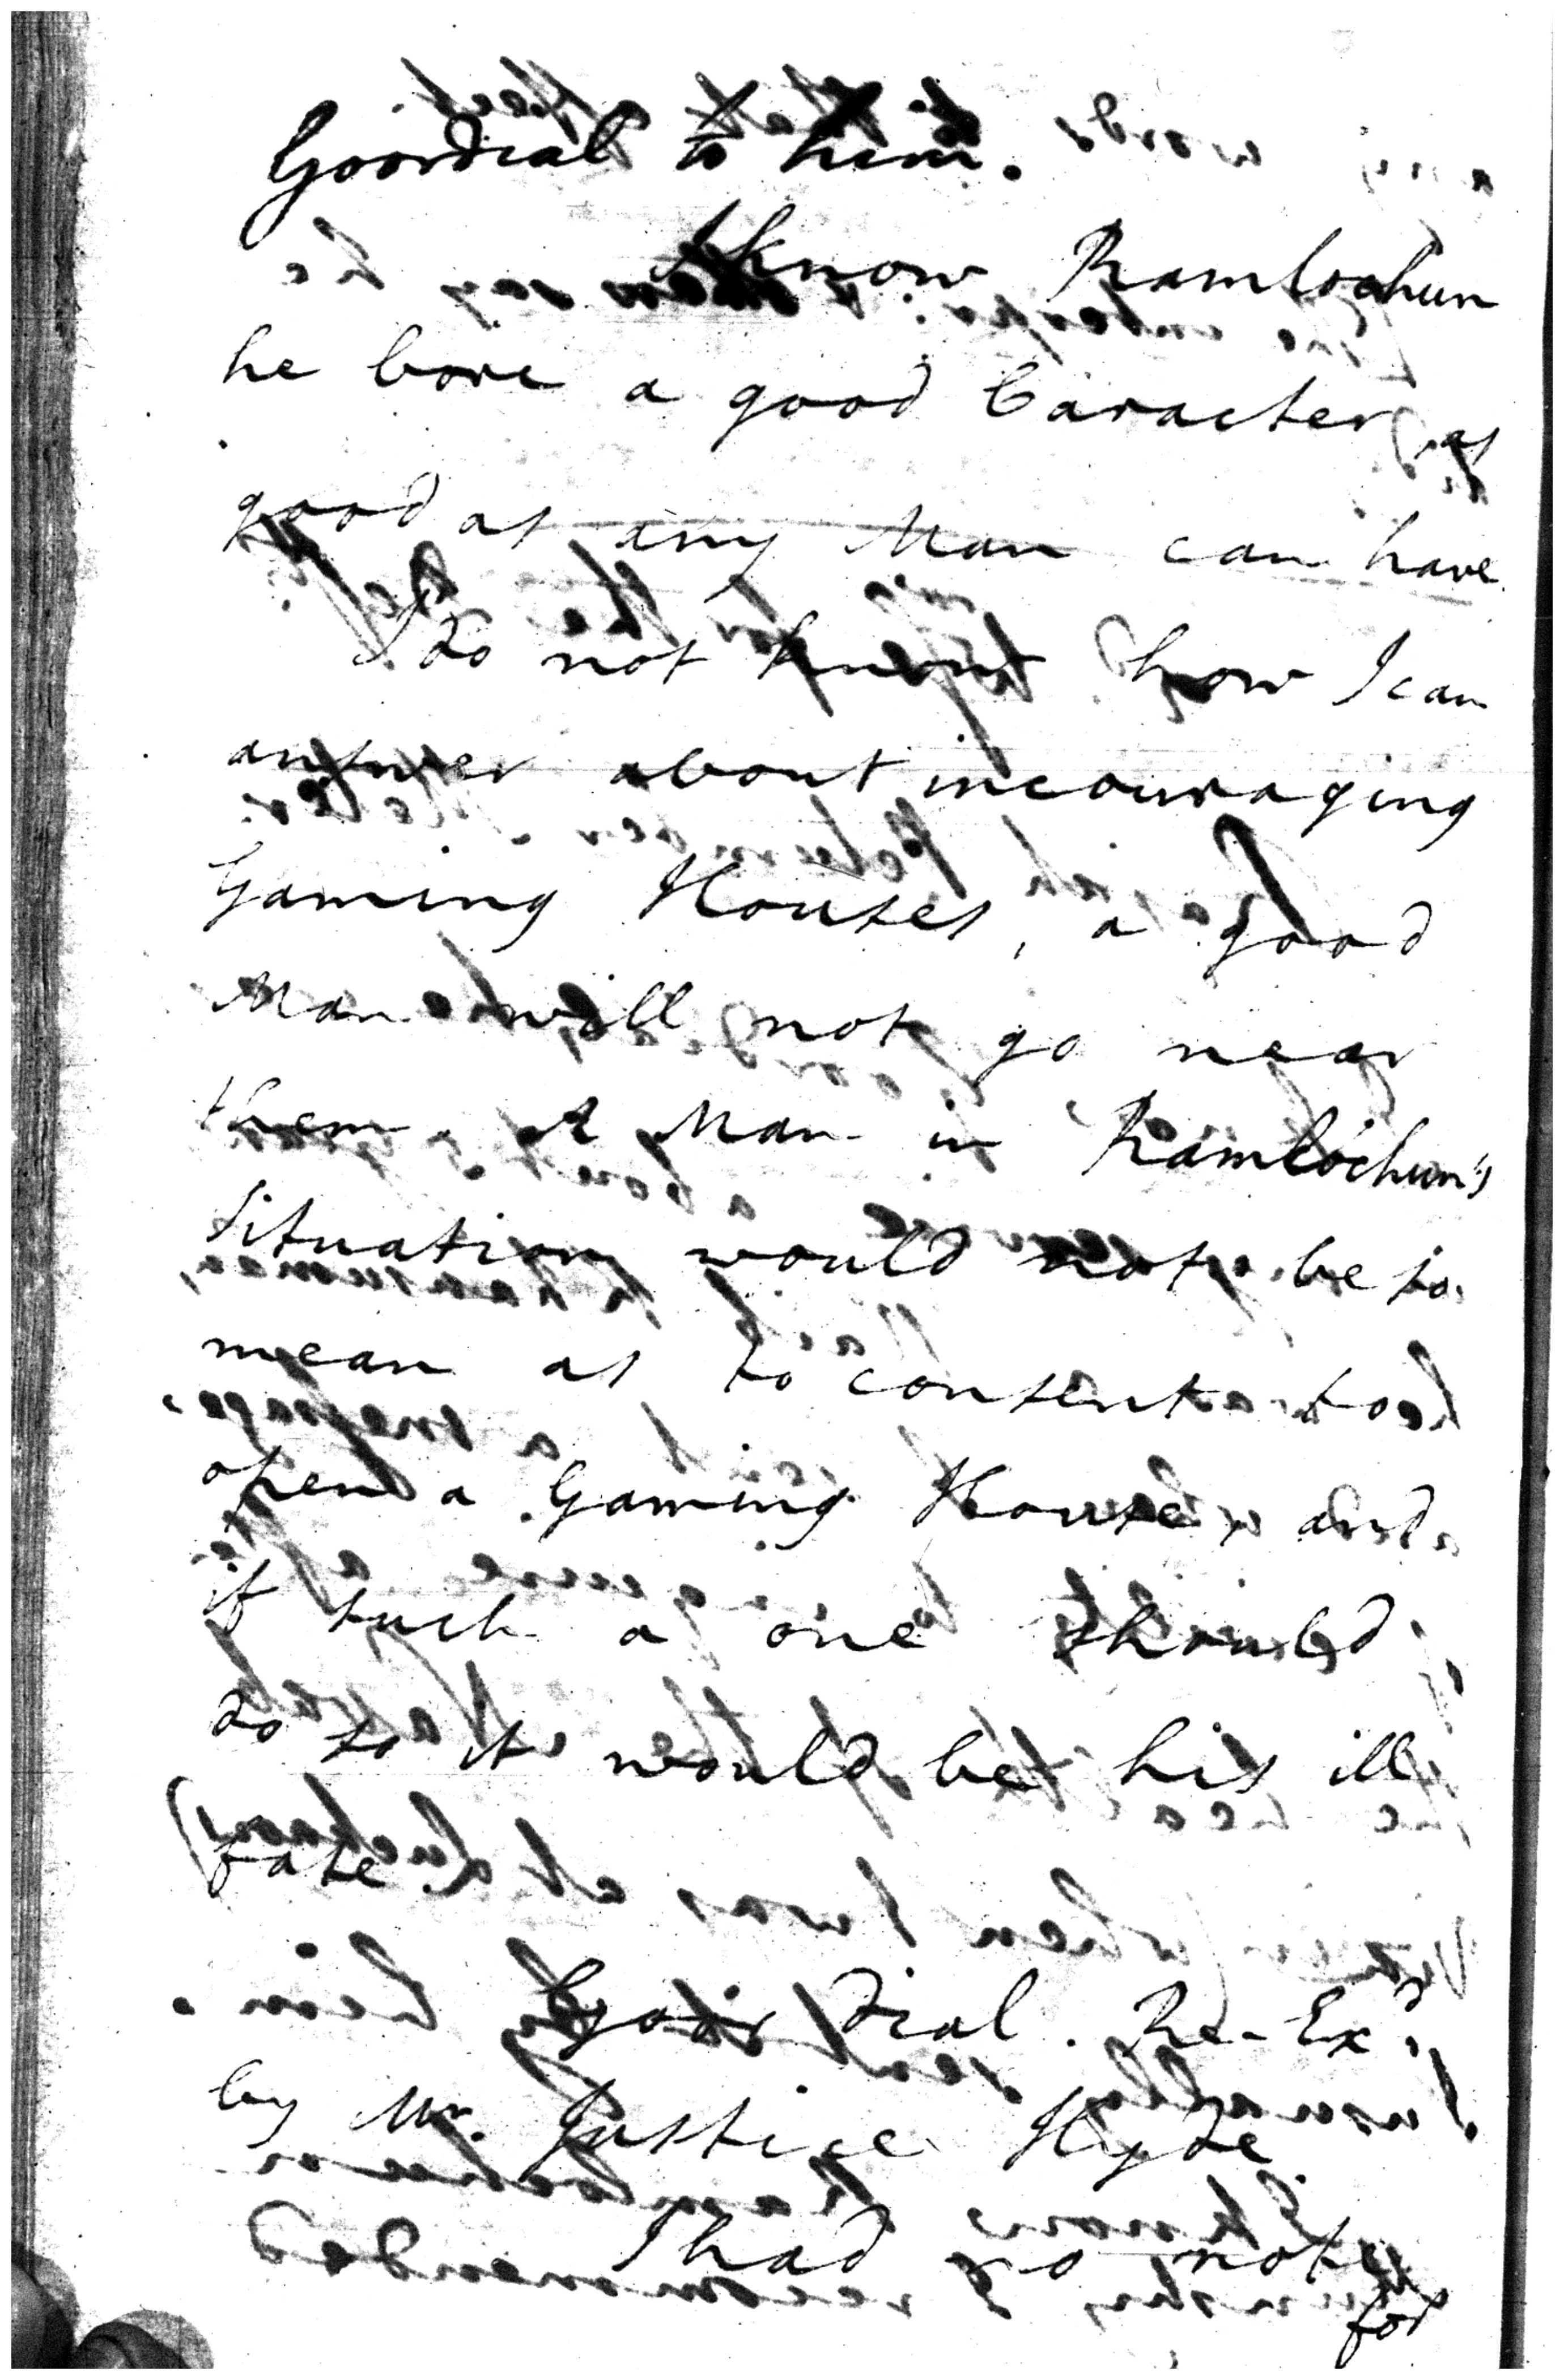 Goordial to him.
I know Ramlochun
he bore a good Caracter, as
good as any Man can have.
I do not know how I can
answer about incouraging
Gaming Houses, a good
Man will not go near
them. A Man in Ramlochun's
Situation would not be so
mean as to consent to
open a Gaming House, and
if such a one should
do so it would be his ill
fate.
Goordial. Re-Exd
by Mr. Justice Hyde
I had no note
for